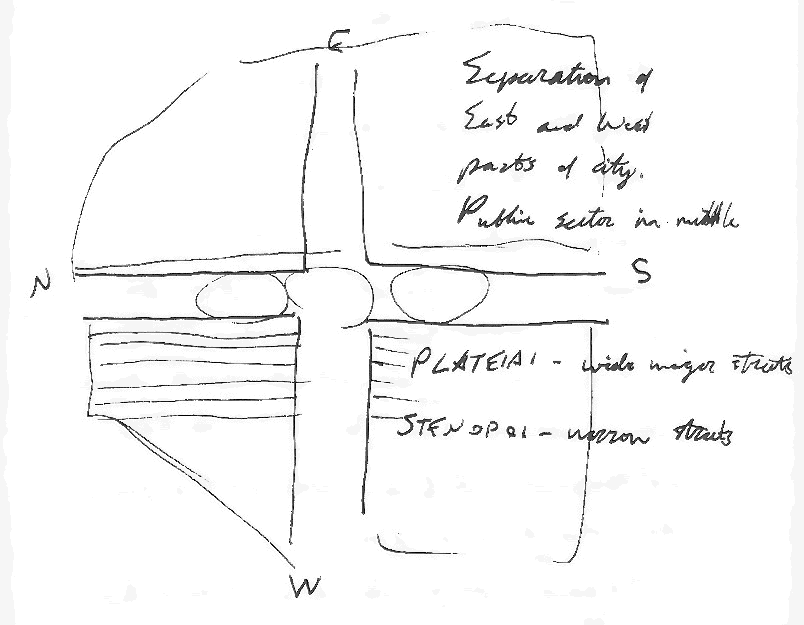 E
Separation of
East and West
parts of city.
Public sector in middle
N
S
PLATEIAI - wide major streets
STENOPOI - narrow streets
W